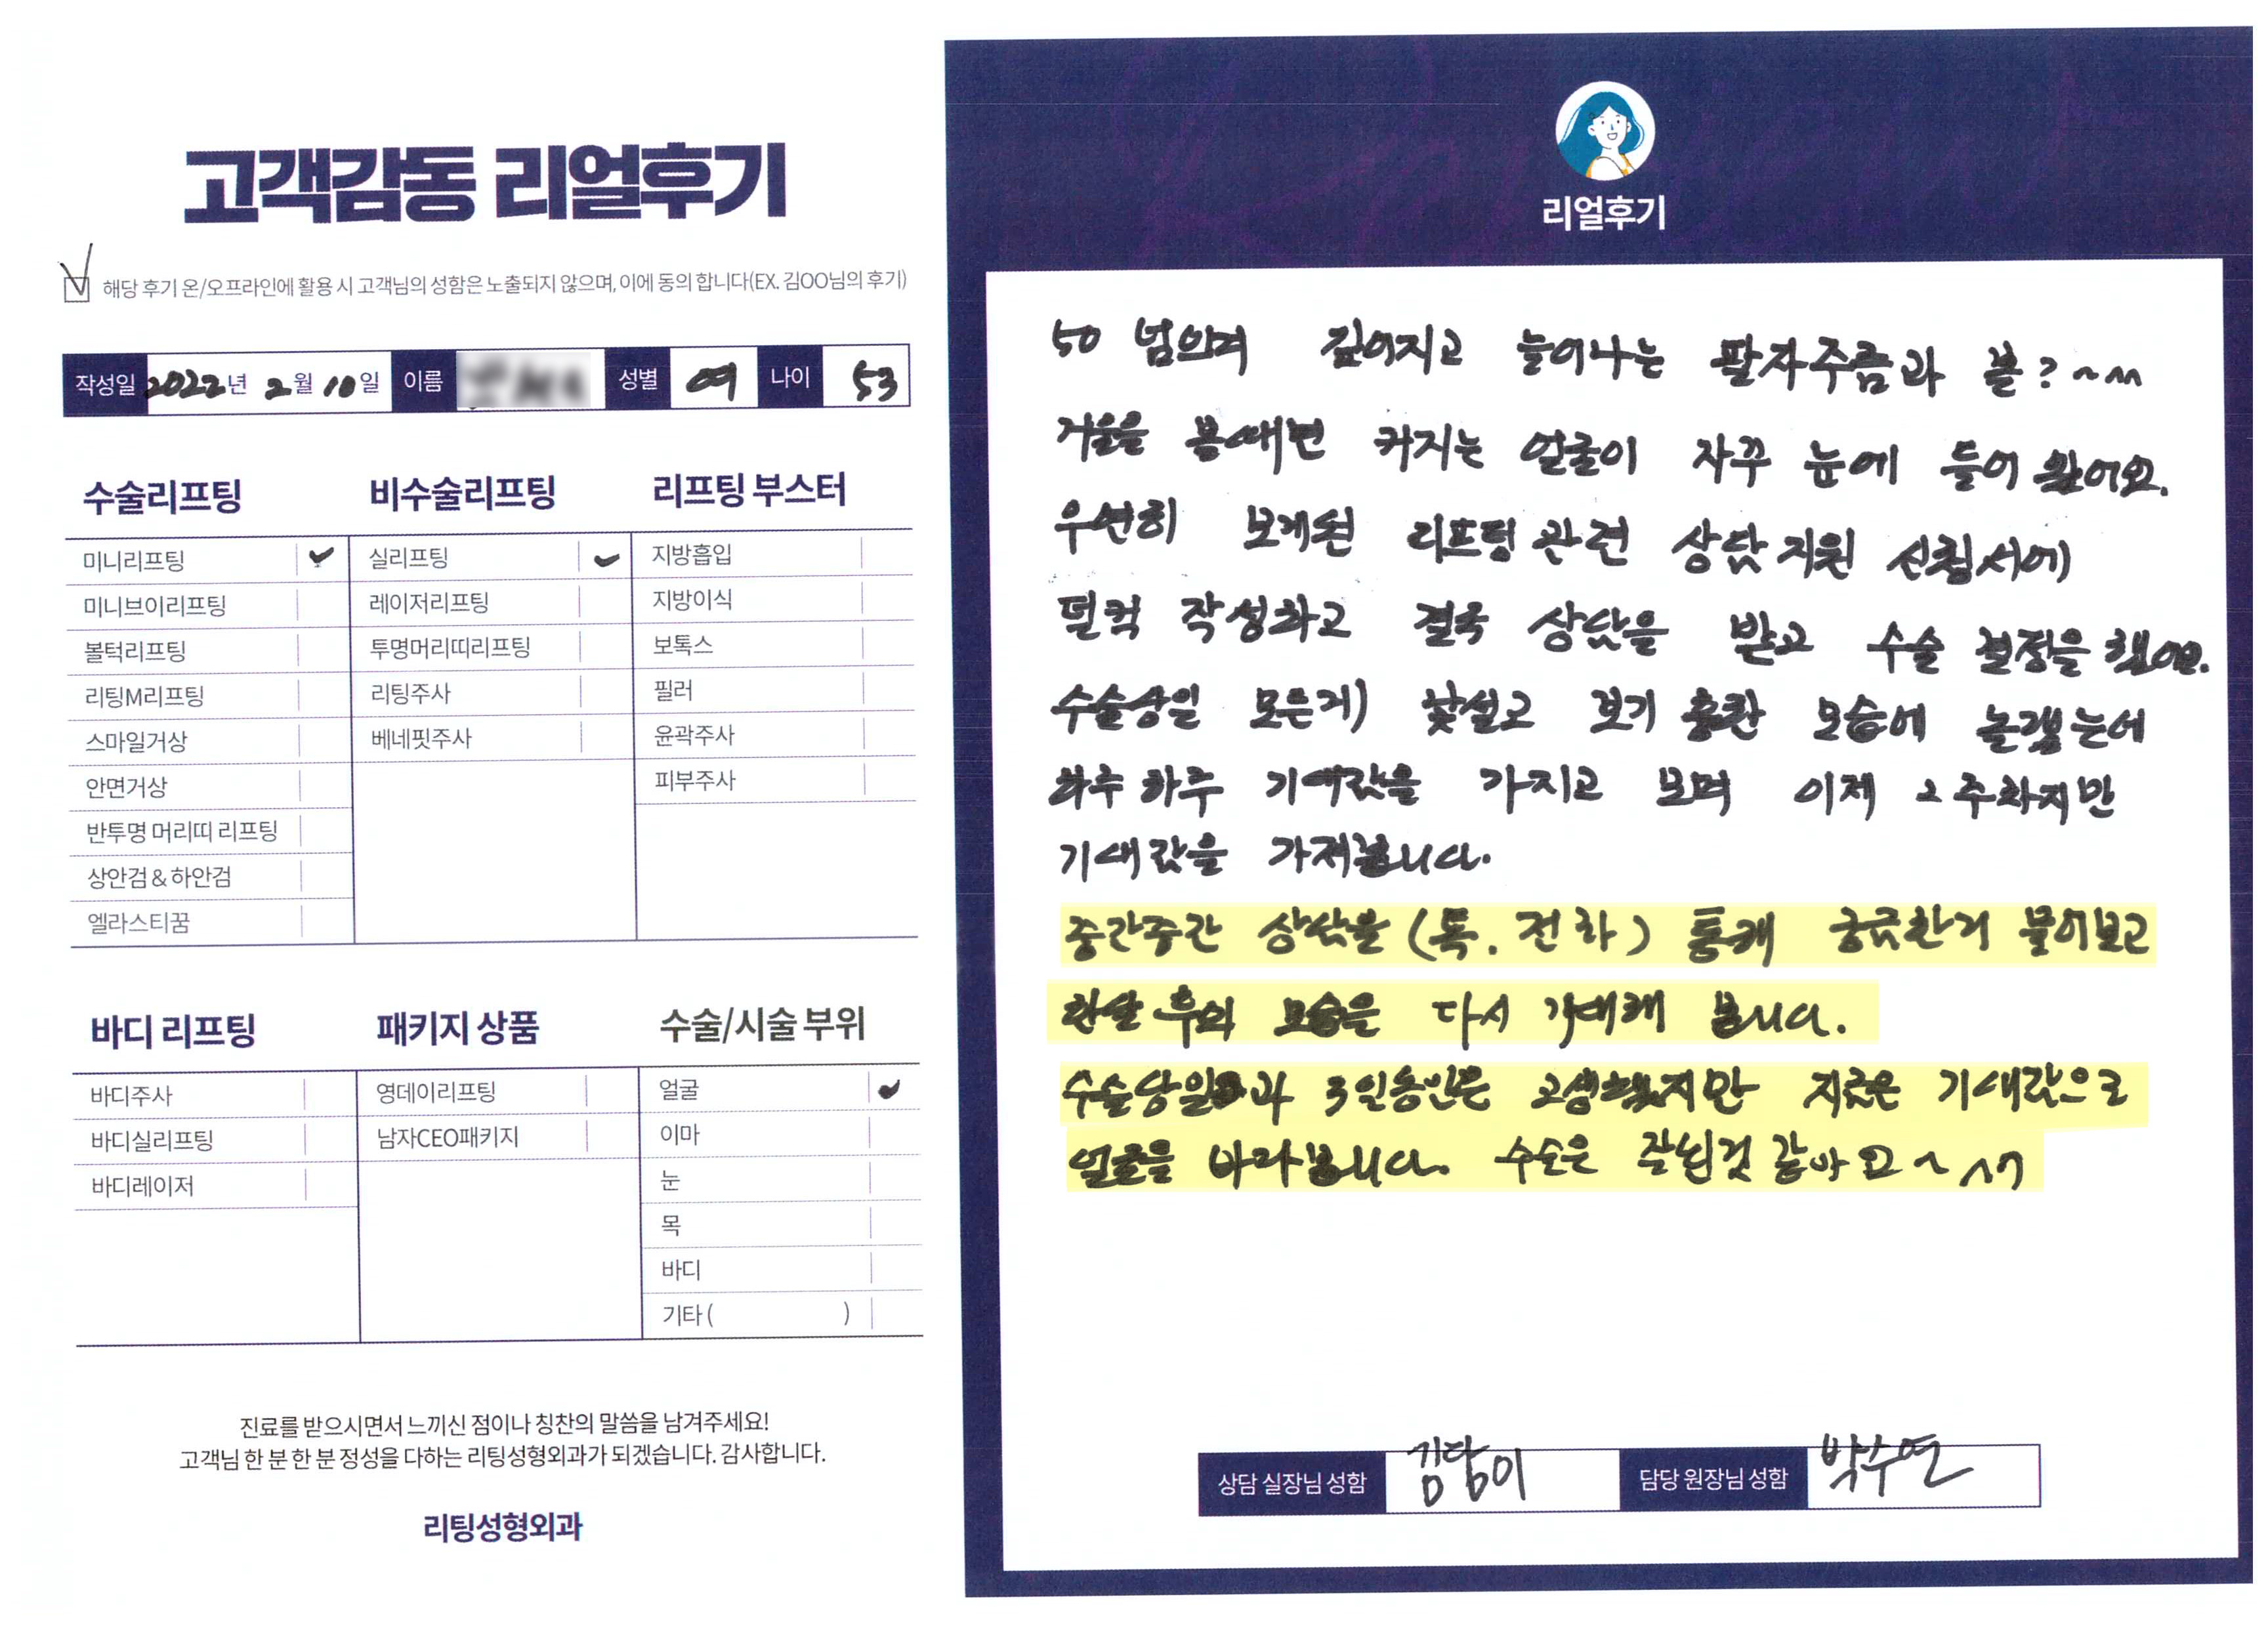 고객감동 리얼후기
해당 후기 온/오프라인에 활용 시 고객님의 성함은 노출되지 않으며, 이에 동의 합니다(EX. 김OO님의 후기)
작성일 2022년 2월 10일 이름 성별 여 나이 53
수술리프팅
미니리프팅
미니브이리프팅
볼턱리프팅
리팅M리프팅
스마일거상
안면거상
반투명 머리띠 리프팅
상안검 & 하안검
엘라스티꿈
비수술리프팅
실리프팅
레이저리프팅
투명머리띠리프팅
리팅주사
베네핏주사
리프팅 부스터
지방흡입
지방이식
보톡스
필러
윤곽주사
피부주사
바디 리프팅
바디주사
바디실리프팅
바디레이저
패키지 상품
영데이리프팅
남자CEO패키지
수술/시술 부위
얼굴
이마
눈
목
바디
기타 ( )
진료를 받으시면서 느끼신 점이나 칭찬의 말씀을 남겨주세요!
고객님 한 분 한 분 정성을 다하는 리팅성형외과가 되겠습니다. 감사합니다.
리팅성형외과
리얼후기
50 넘으며 깊어지고 늘어나는 팔자주름과 볼?~^^
거울을 볼때면 커지는 얼굴이 자꾸 눈에 들어 왔어요.
우연히 보게된 리프팅 관련 상담지원 신청서에
덜컥 작성하고 결국 상담을 받고 수술 결정을 했어요.
수술당일 모든게 낯설고 보기 흉한 모습에 놀랬는데
하루 하루 기대값을 가지고 보며 이제 2주차지만
기대값을 가져봅니다.
중간중간 상담을 (톡. 전화) 통해 궁금한거 물어보고
한달 후의 모습을 다시 기대해 봅니다.
수술당일과 3일동안은 고생했지만 지금은 기대값으로
얼굴을 바라봅니다. 수술은 잘된것 같아요~^^
상담 실장님 성함 김담이 담당 원장님 성함 박수연